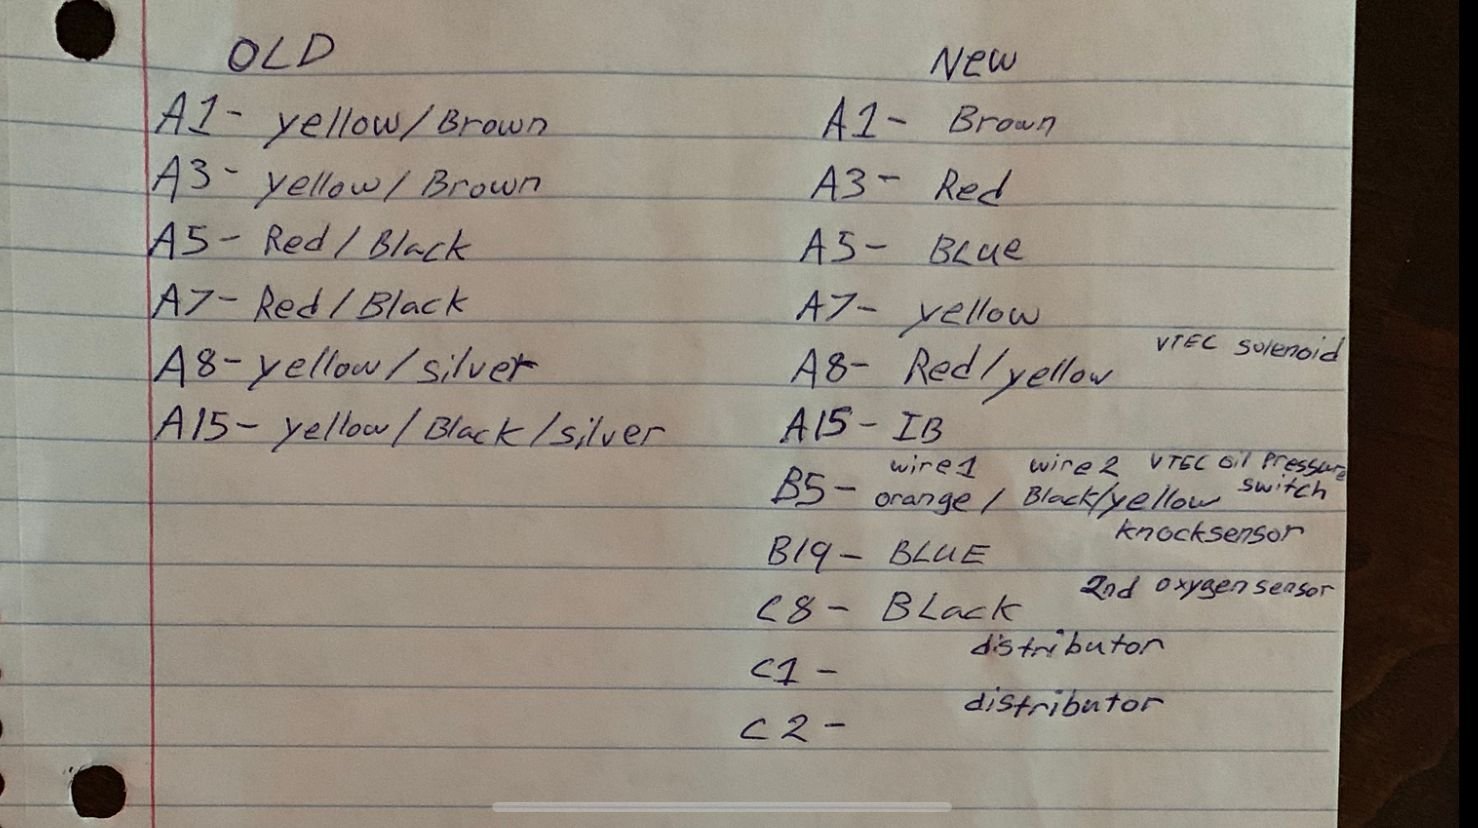 OLD
A1- yellow/Brown
A3- yellow/Brown
A5- Red/Black
A7- Red/Black
A8- yellow/silver
A15- yellow/Black/silver
New
A1- Brown
A3- Red
A5- BLUe
A7- yellow
VTEC solenoid
A8- Red/yellow
A15- IB
wire 1 wire 2 VTEC oil Pressure switch
B5- orange / Black/yellow
knocksensor
B19- BLUE
2nd oxygen sensor
C8- BLack
distributor
C1-
distributor
C2-